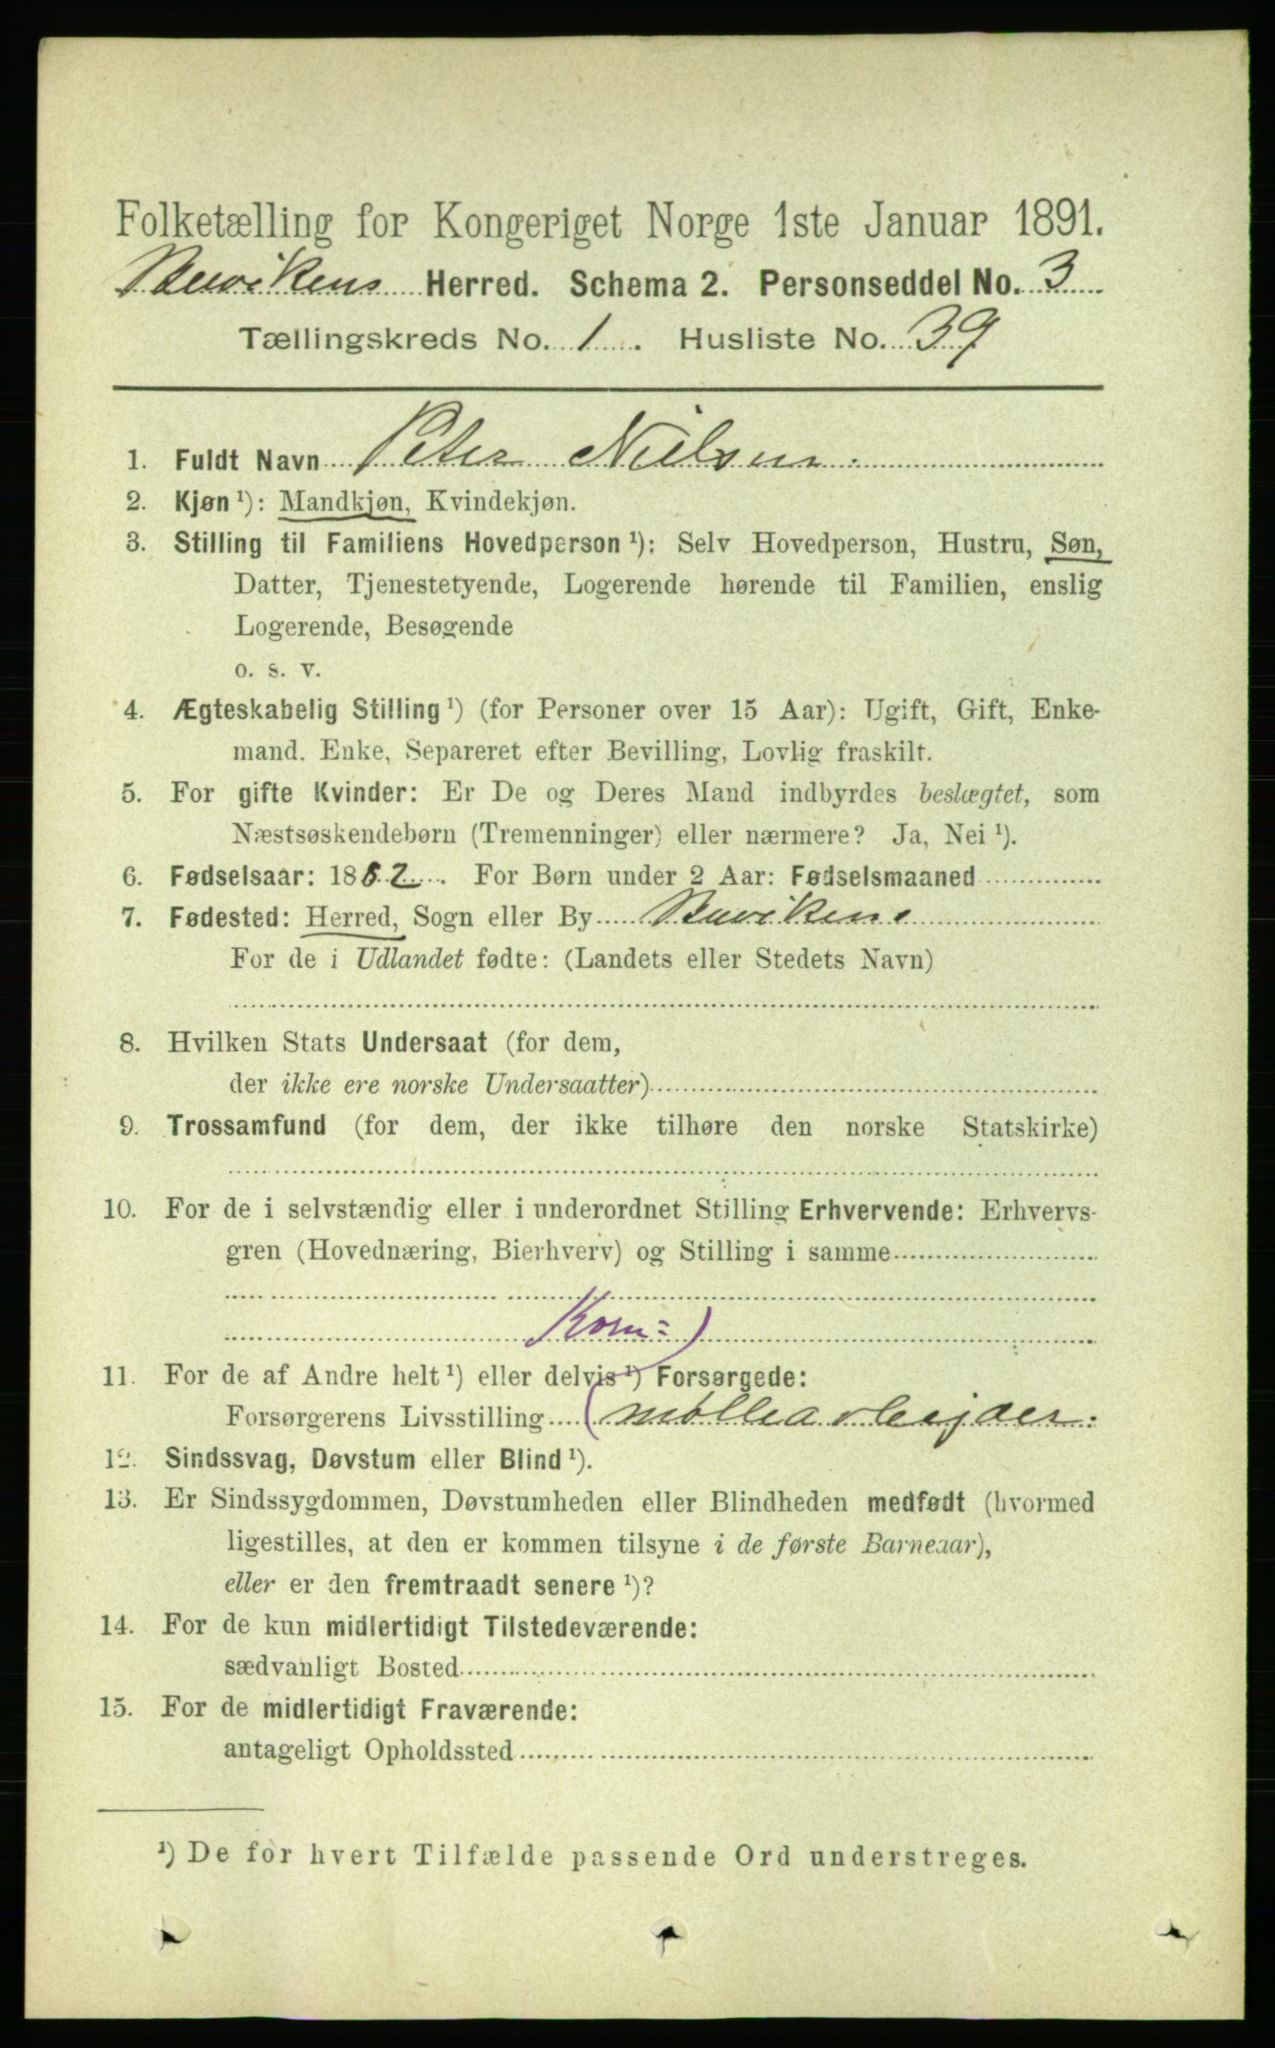 Folketælling for Kongeriget Norge 1ste Januar 1891.
Buvikens Herred. Schema 2. Personseddel No. 3
Tællingskreds No. 1. Husliste No. 39
1. Fuldt Navn Peter Nielsen
2. Kjøn¹): Mandkjøn, Kvindekjøn.
3. Stilling til Familiens Hovedperson¹): Selv Hovedperson, Hustru, Søn,
Datter, Tjenestetyende, Logerende hørende til Familien, enslig
Logerende, Besøgende
o. s. v.
4. Ægteskabelig Stilling¹) (for Personer over 15 Aar): Ugift, Gift, Enke-
mand. Enke, Separeret efter Bevilling, Lovlig fraskilt.
5. For gifte Kvinder: Er De og Deres Mand indbyrdes beslægtet, som
Næstsøskendebørn (Tremenninger) eller nærmere? Ja, Nei¹).
6. Fødselsaar: 1882. For Børn under 2 Aar: Fødselsmaaned
7. Fødested: Herred, Sogn eller By Buvikens
For de i Udlandet fødte: (Landets eller Stedets Navn)
8. Hvilken Stats Undersaat (for dem,
der ikke ere norske Undersaatter)
9. Trossamfund (for dem, der ikke tilhøre den norske Statskirke)
10. For de i selvstændig eller i underordnet Stilling Erhvervende: Erhvervs-
gren (Hovednæring, Bierhverv) og Stilling i samme
Korn=)
11. For de af Andre helt¹) eller delvis¹) Forsørgede:
Forsørgerens Livsstilling (møllearbejder.
12. Sindssvag, Døvstum eller Blind¹).
13. Er Sindssygdommen, Døvstumheden eller Blindheden medfødt (hvormed
ligestilles, at den er kommen tilsyne i de første Barneaar),
eller er den fremtraadt senere¹)?
14. For de kun midlertidigt Tilstedeværende:
sædvanligt Bosted
15. For de midlertidigt Fraværende:
antageligt Opholdssted
¹) De for hvert Tilfælde passende Ord understreges.